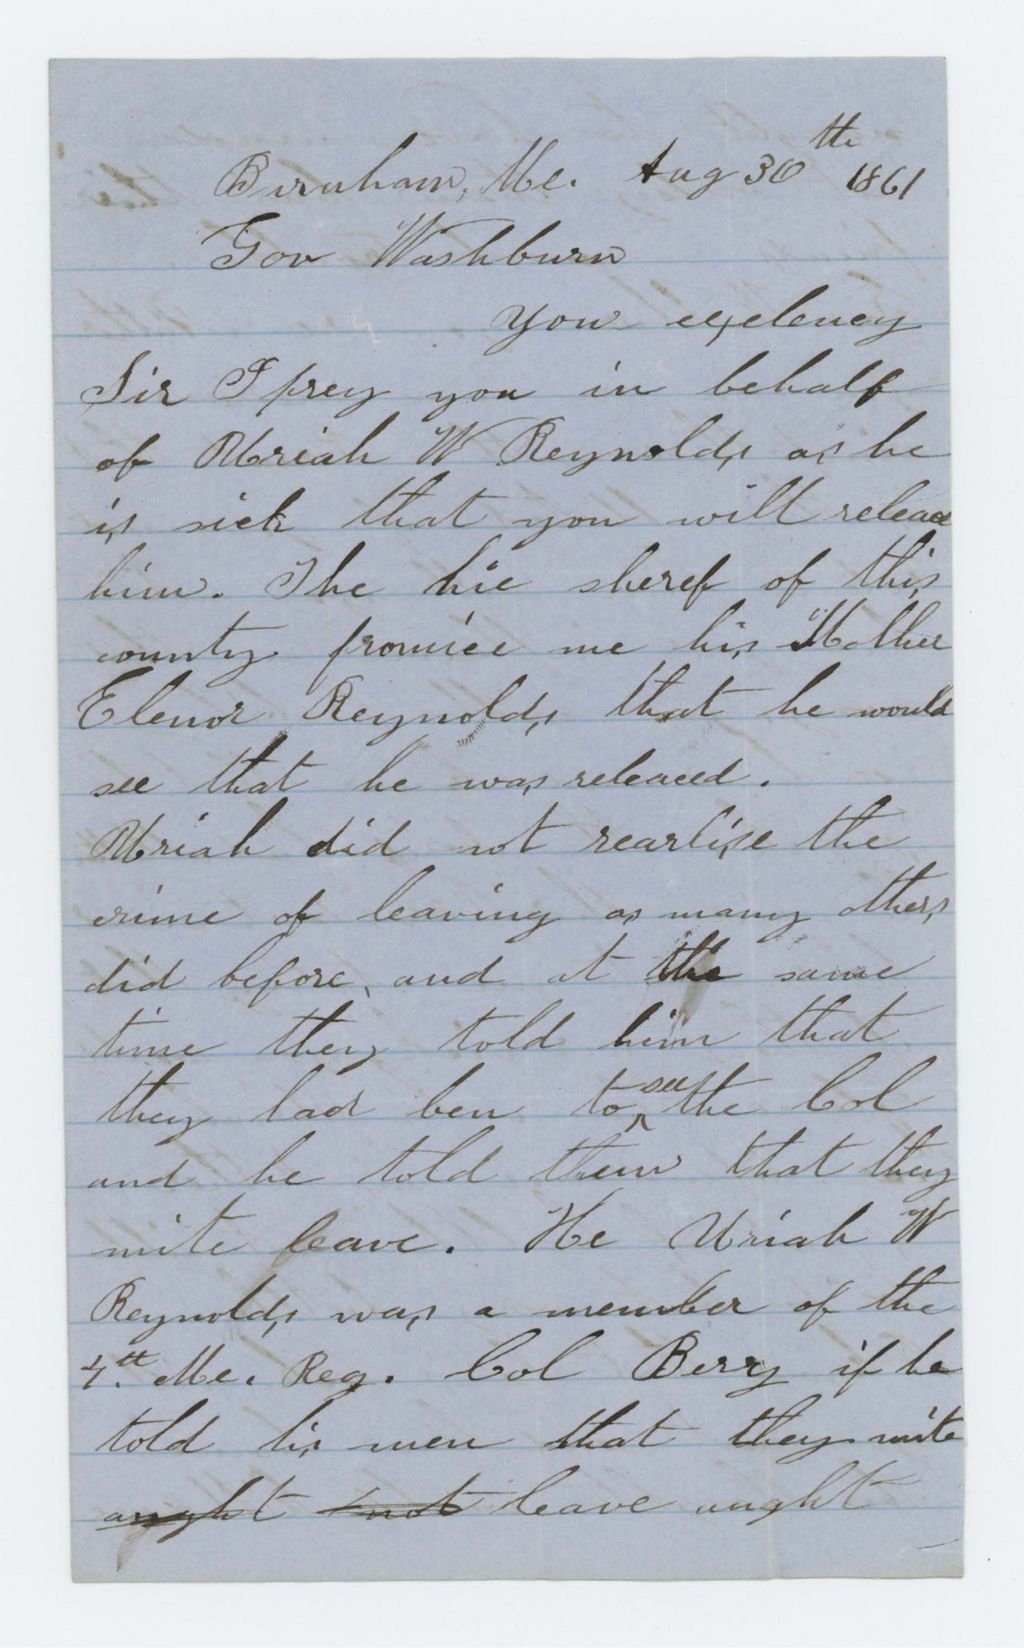 Burnham, Me. Aug 30th 1861
Gov Washburn
Your exelency
Sir I prey you in behalf
of Uriah W Reynolds as he
is sick that you will releace
him. The hie sheref of this
county promice me his Mother
Elenor Reynolds that he would
see that he was releaced.
Uriah did not rearlise the
crime of leaving as many others
did before, and at the same
time they told him that
they had ben to see the Col
and he told them that they
mite leave. He Uriah W
Reynolds was a member of the
4th Me. Reg. Col Berry if he
told his men that they mite
aught not leave aught